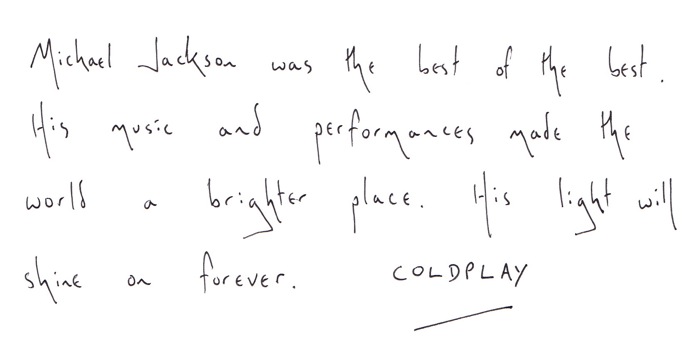 Michael Jackson was the best of the best.
His music and performances made the
world a brighter place. His light will
shine on forever. COLDPLAY